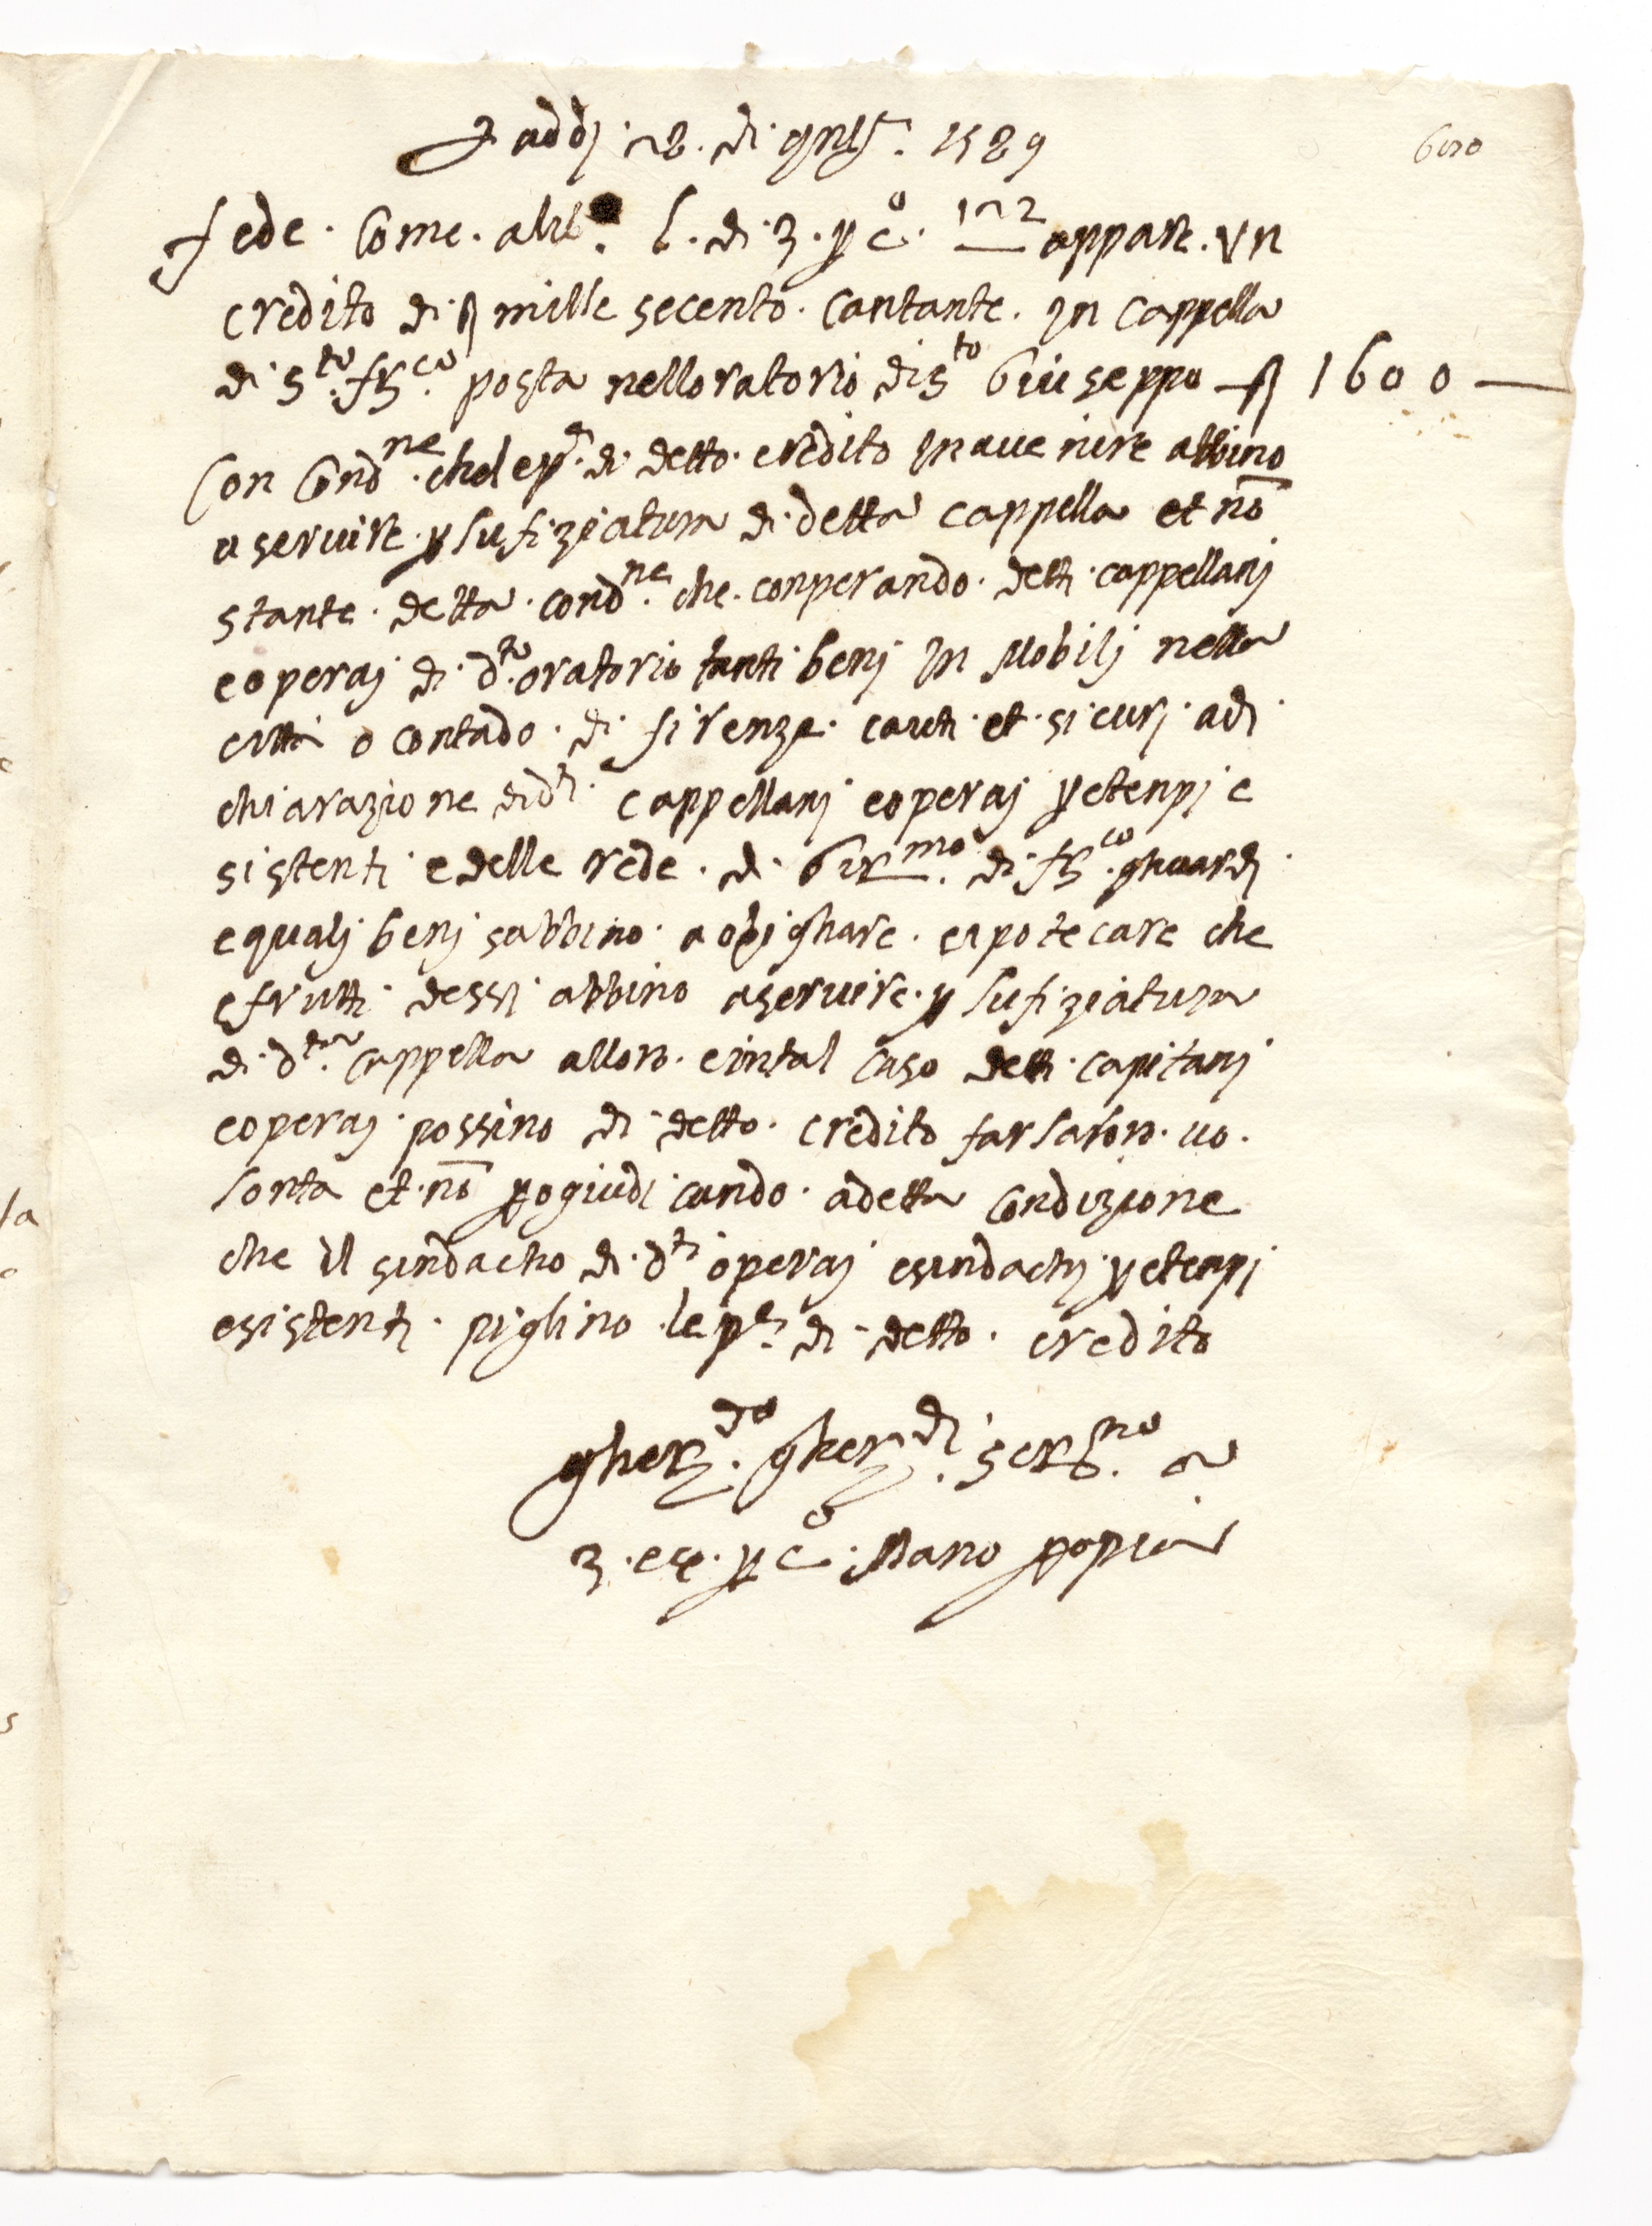 addj 12. di 1589
6010
fede. Come. al lib.o l. di 3. p co. 122 appare. Vn
credito di fl mille secento. Cantante. In cappella
di sto. frco. posta nelloratorio di sto Giuseppo fl 1600 —
Con Condne. chelepe. di detto. credito In auenire abbino
a seruire. p Lufiziatura di detta cappella et nō
stante. detta. condne. che. conperando. detti. cappellanj
eoperaj di dto. oratorio tanti benj In Mobilj nella
citta o contado. di firenze. cauti. et. sicurj. adi
chiarazione didti. cappellanj eoperaj petenpj e
sistenti e delle rede. di Girmo. di frco. ghuardi
equalj benj sabbino. a obighare. eipotecare che
efrutti dessi abbino aseruire. p Lufiziatura
di dta. cappella allora. eintal caso detti. capitanj
eoperaj possino di detto. credito far laloro. uo.
lonta et. nō progiudicando. adetta condizione
che il sindacho di dti operaj esindachj petenpi
esistenti. piglino le pe. di detto. credito
gherdo. gherdi. scrno. a
3. ce. p co. Mano propia